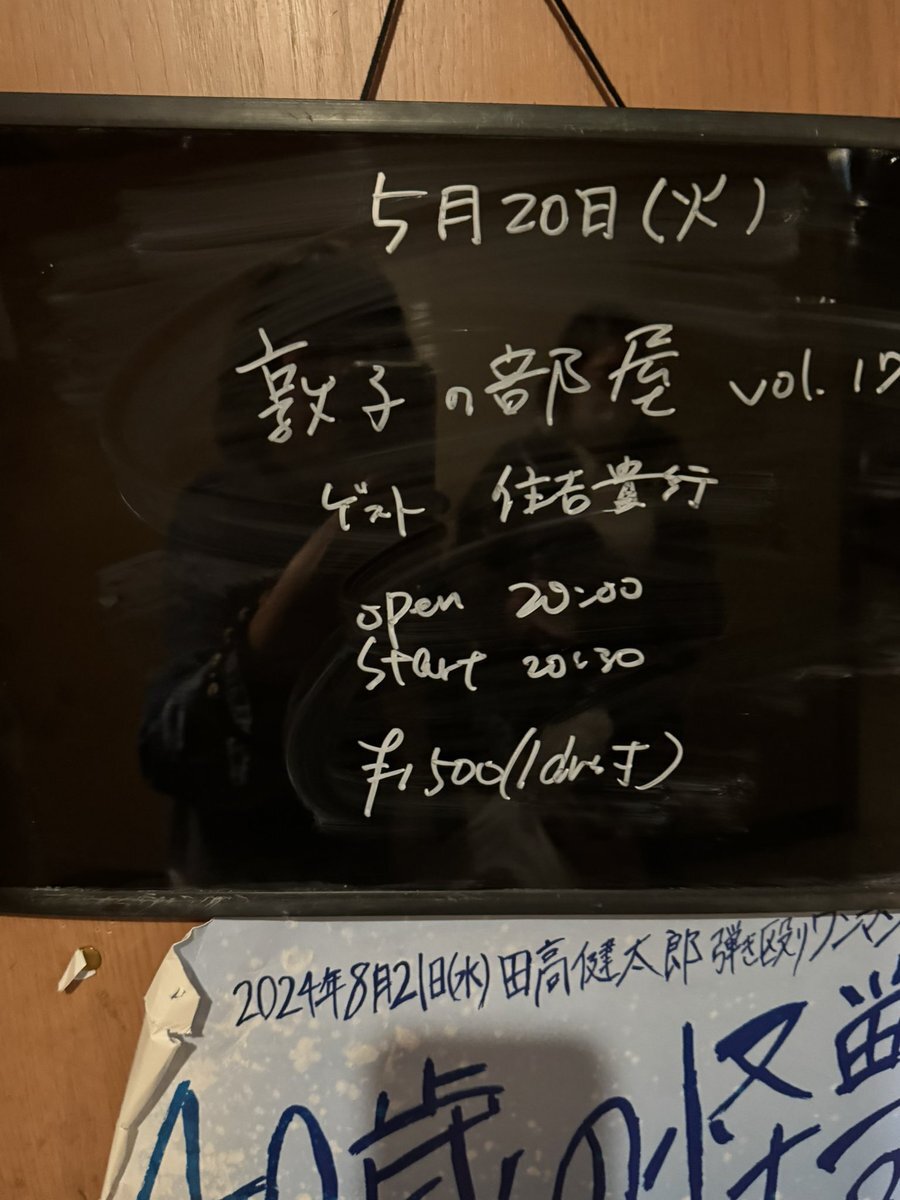 5月20日(火)
敦子の部屋 vol.17
ゲスト 住吉貴行
open 20:00
start 20:30
¥1,500(1drオす)
2024年8月21日(水) 田高健太郎 弾き殴りワンマン
40歳の怪獣